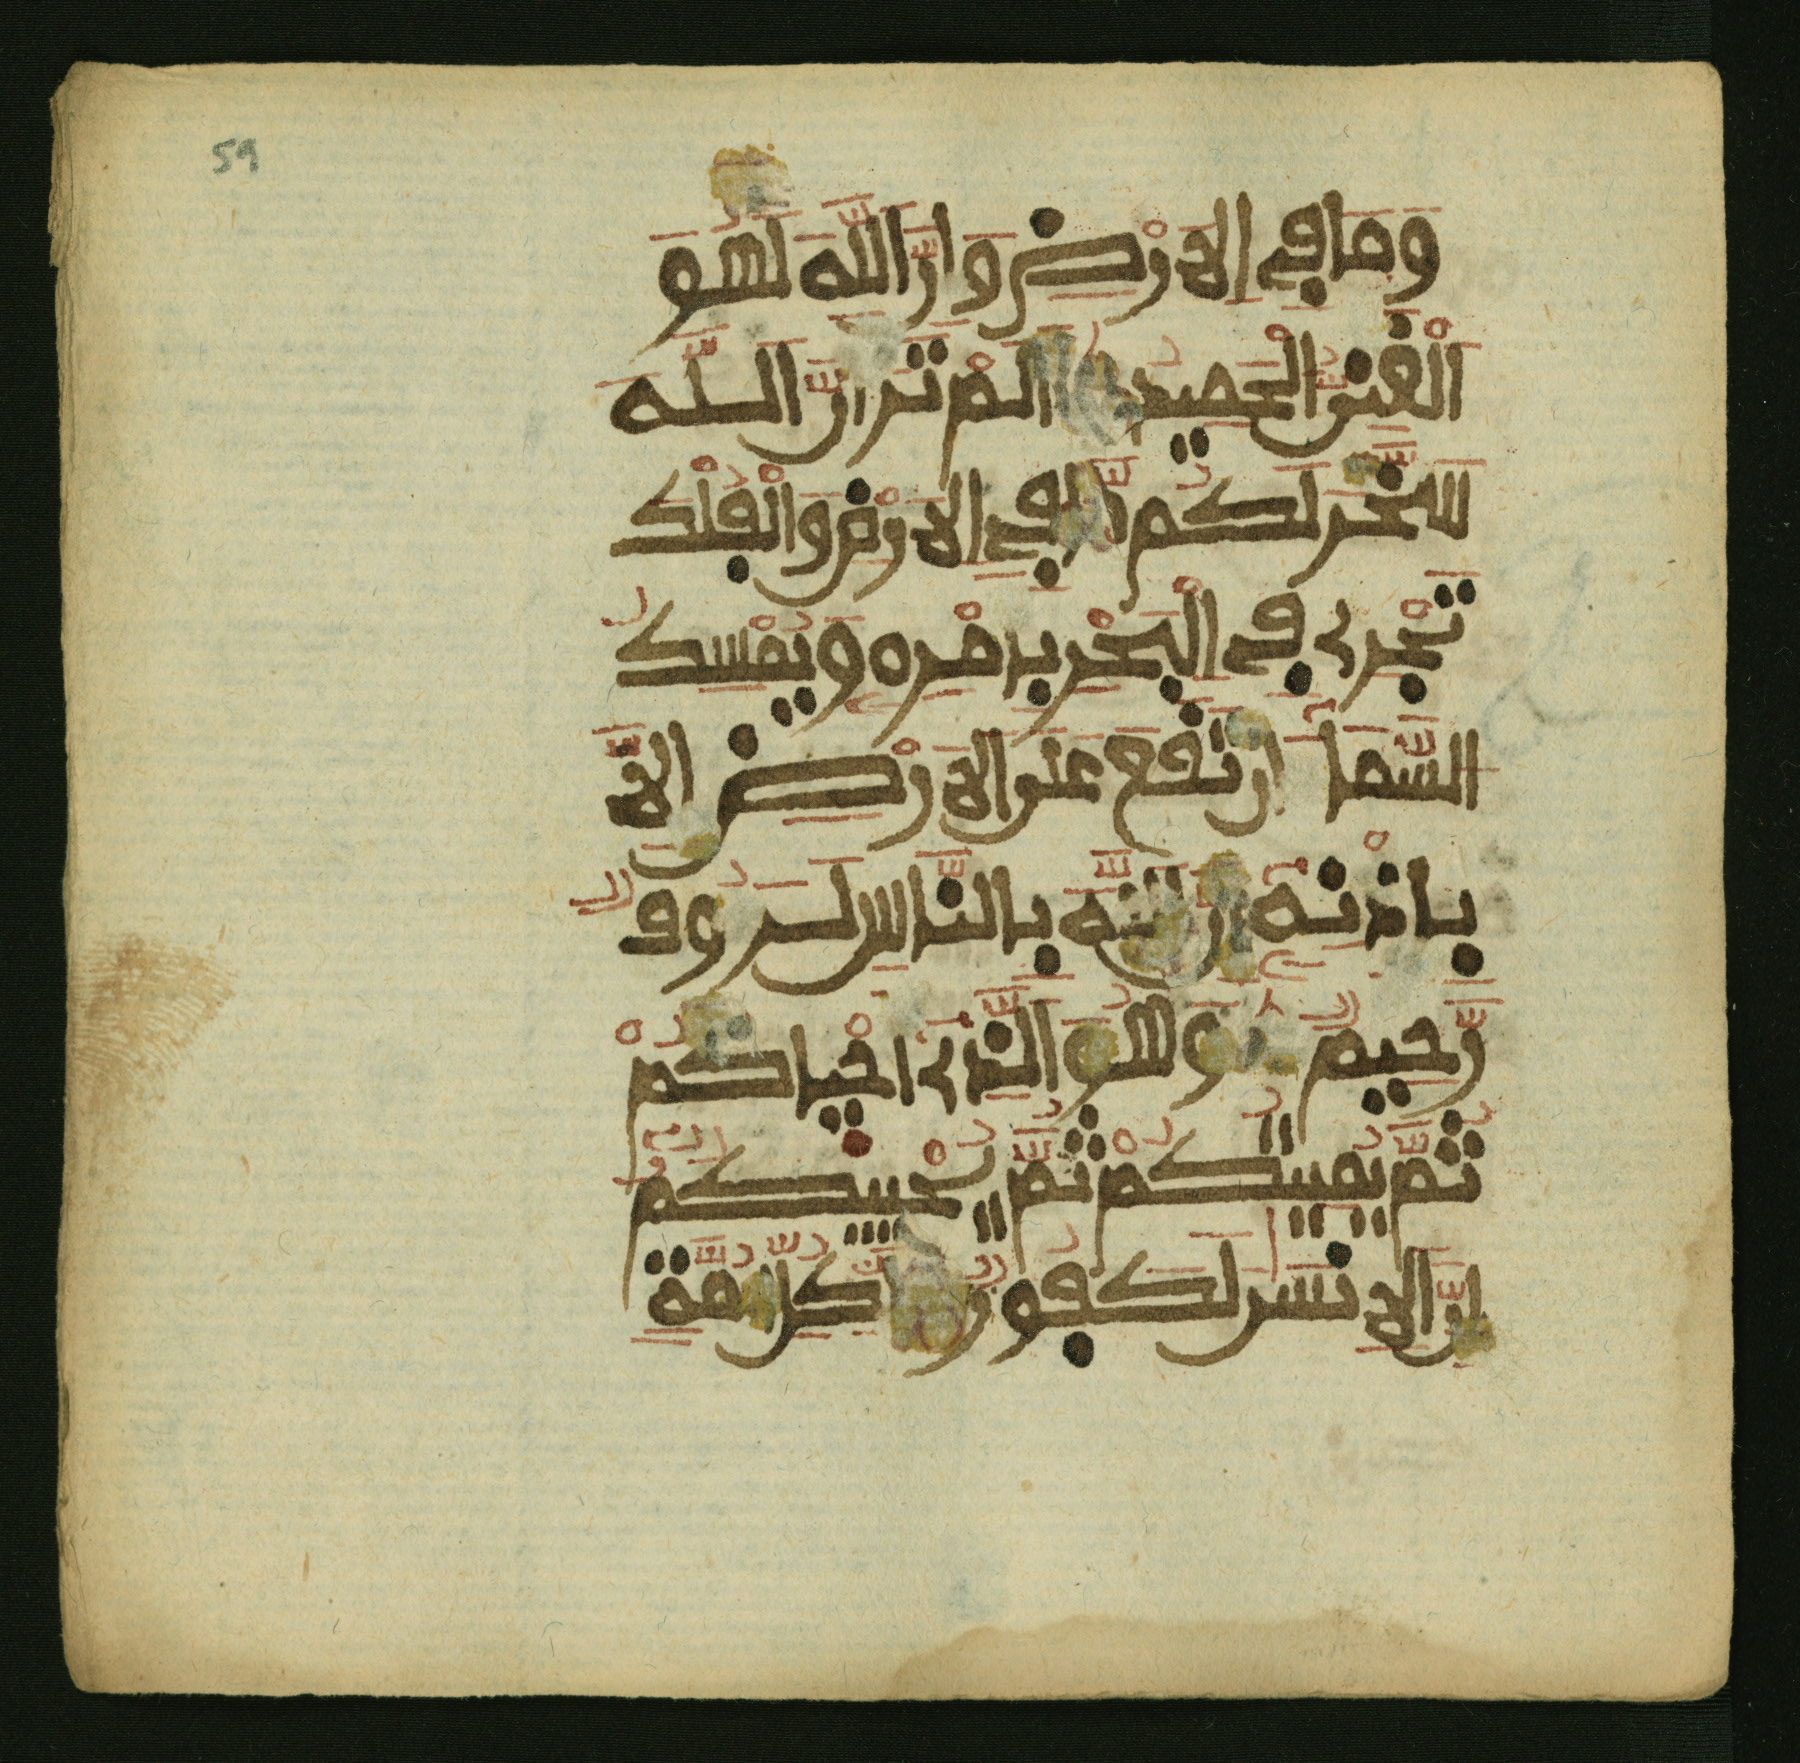 59
وَمَا فِے اِ۬لَارْضِ وَإِنَّ اَ۬للَّهَ لَهُوَ
اَ۬لْغَنِىُّ اُ۬لْحَمِيدُ أَلَمْ تَرَ أَنَّ اَ۬للَّهَ
سَخَّرَ لَكُم مَّا فِے اِ۬لَارْضِ وَالْفُلْكَ
تَجْرِے فِے اِ۬لْبَحْرِ بِأَمْرِهِ وَيُمْسِكُ
اَ۬لسَّمَآءَ ان تَفَعَ عَلَى اَ۬لَارْضِ إِلَّا
بِإِذْنِهِ إِنَّ اَ۬للَّهَ بِالنَّاسِ لَرَءُوفٌ
رَّحِيمٌ وَهُوَ اَ۬لذِے أَحْياكُمْ
ثُمَّ يُمِيتُكُمْ ثُمَّ يُحْيِيكُمُ
إِنَّ اَ۬لِانسَٰنَ لَكَفُورٌ لِّكُلِّ أُمَّةٍ